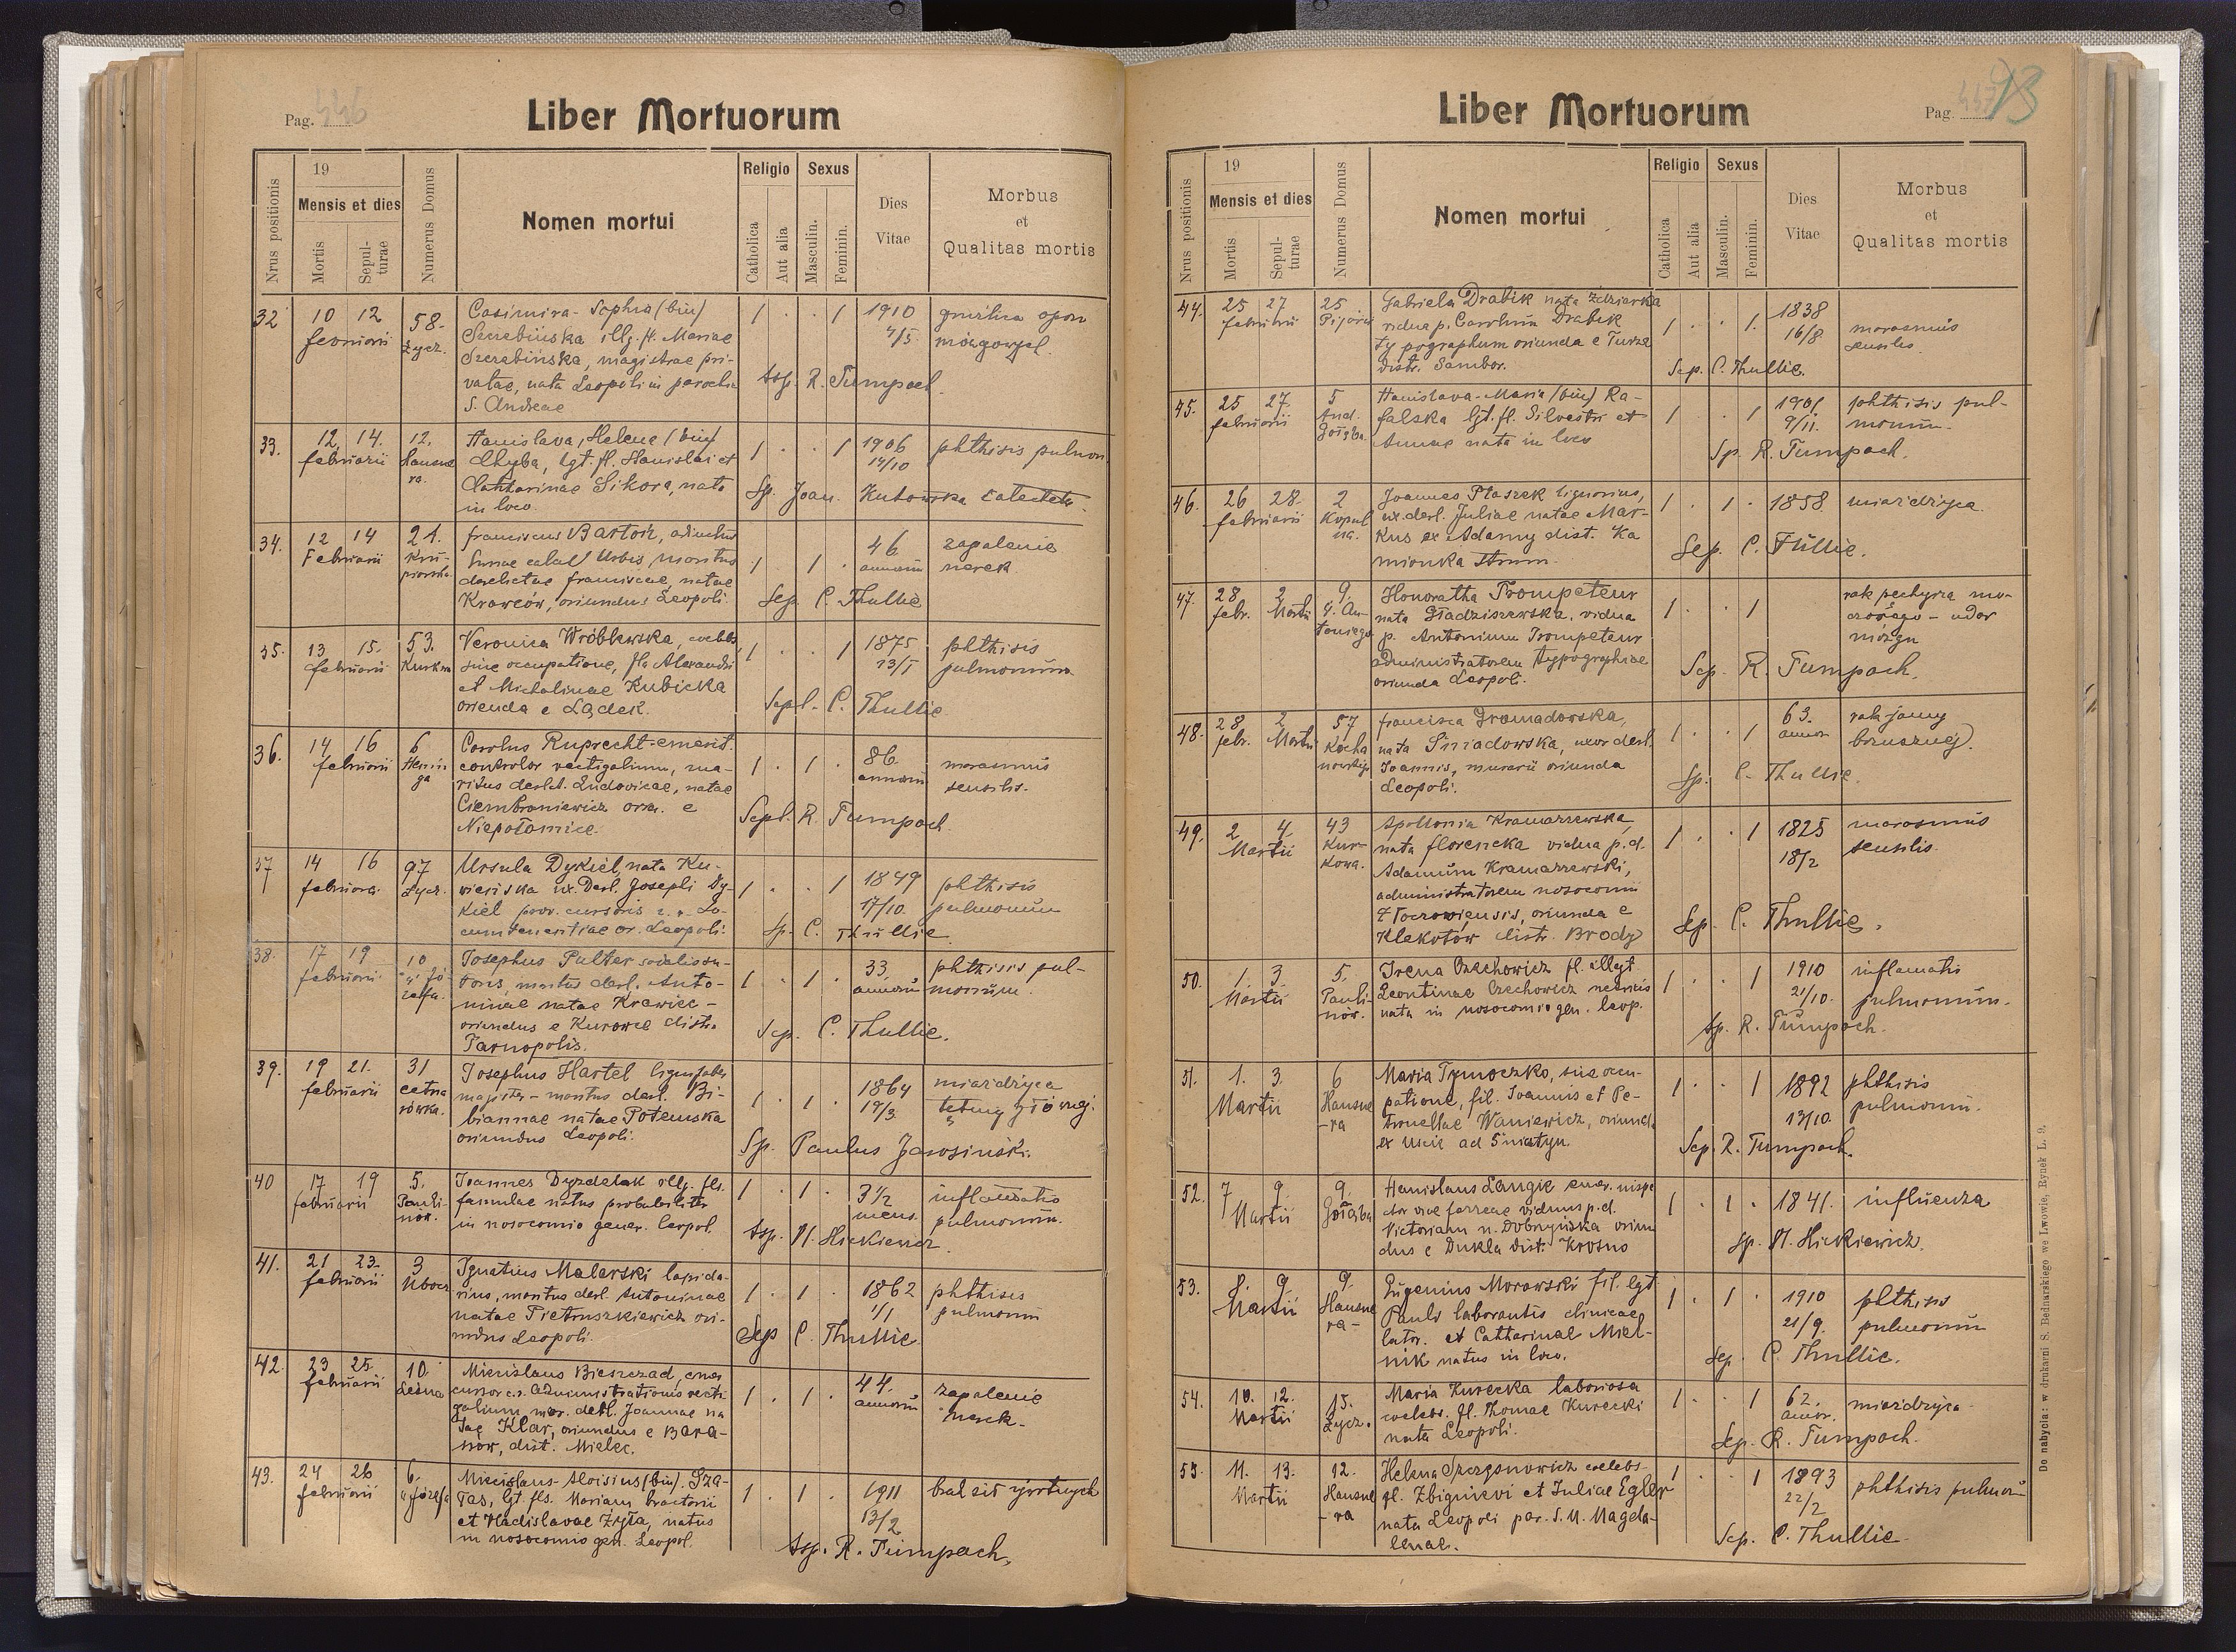 Pag. 446
Liber Mortuorum
Nrus positionis
19
Mensis et dies
Mortis
Sepul-
turae
Numerus Domus
Nomen mortui
Religio
Catholica
Aut alia
Sexus
Masculin.
Feminin.
Dies
Vitae
Morbus
et
Qualitas mortis
32 10 12 58. Casimira-Sophia (bin) 1 . . 1 1910 gruźlica opon
februarii Łycz. Szerabińska illg. fl. Mariae 4/5 mózgowych.
Szerabińska, magistrae pri-
vatae, nata Leopoli in parochia Ssp. R. Tumpach.
S. Andreae
33. 12. 14. 12. Stanislava, Helena (bin) 1 . . 1 1906 phthisis pulmon.
februarii Hausne Chyba, lgt. fl. Stanislai et 14/10
ra. Catharinae Sikora, nata Sp. Joan. Kutowska
in loco
34. 12 14 21. Franciscus Bartoń, adiunctus 1 . 1 . 46 zapalenie
Februarii Kru- Urbis, maritus annorum nerek
piarska derelictae Franciscae, natae
Krawców, oriundus Leopoli. Sep. C. Thullie
35. 13 15. 53. Veronica Wróblewska, coelebs 1 . . 1 1875 phthisis
februarii Kurkowa sine occupatione, fl. Alexandri 13/1 pulmonum
et Michalinae Kubicka
oriunda e Lądek. Sepl. C. Thullie
36. 14 16 6 Carolus Ruprecht-emerit. 1 . 1 . 86 marasmus
februarii Hernin controlor vectigalium, ma- annorum senilis.
ga ritus derel. Ludovicae, natae
Ciembroniewicz e Sepl. R. Tumpach.
Niepołomice.
37 14 16 97 Ursula Dykiel, nata Ku- 1 . . 1 1849 phthisis
februarii Łycz. ux. Derl. Josephi Dy- 17/10 pulmonum
kiel prov. cursoris Sp. C. Thullie
or. Leopoli.
38. 17 19 10 Josephus Pulter 1 . 1 . 33 phthisis pul-
februarii Jó- maritus derl. Anto- annorum monum.
zefa. ninae natae Krawiec -
oriundus e Kurowce distr. Sep. C. Thullie.
Tarnopolis.
39. 19 21. 31 Josephus Hartel lignifaber 1 . 1 . 1864 miażdżyca
februarii cetna magister - maritus derl. Bi- 19/3 tętnicy głównej.
rówka. biannae natae Potemska
oriundus Leopoli. Sp. Paulus Jarosiński.
40 17 19 5. Joannes Dyzdelak illg. fls. 1 . 1 . 3 1/2 inflamatio
februarii Pauli- famulae natus probabiliter mens. pulmonum.
nów. in nosocomio gener. Leopol. Ssp. M. Hickiewicz.
41. 21 23. 3 Ignatius Malarski lapida- 1 . 1 . 1862 phthisis
februarii Ubocz rius, maritus derl. Antoninae 1/1 pulmonum
natae Pietruszkiewicz ori- Sep C. Thullie
undus Leopoli.
42. 23 25. 10 Mieczislaus Bieszczad, emer. 1 . 1 . 44. zapalenie
februarii Leśna cursor c.r. administrationis vecti annorum nerek.
galium, mar. derl. Joannae na
tae Klar, oriundus e Bara-
now, dist. Mielec.
43. 24 26 6. Miecislaus-Aloisius (bin). Sza- 1 . 1 . 1911 brak sił żywotnych
februarii Józefa Tas, lgt. fls. Mariani, tractorii 13/2
et Vladislavae Żyła, natus
in nosocomio gen. Leopol. Ssp. R. Tumpach.
Pag. 93
Liber Mortuorum
Nrus positionis
19
Mensis et dies
Mortis
Sepul-
turae
Numerus Domus
Nomen mortui
Religio
Catholica
Aut alia
Sexus
Masculin.
Feminin.
Dies
Vitae
Morbus
et
Qualitas mortis
44. 25 27 25 Gabriela Drabik nata Zdziarska 1 . . 1. 1838 marasmus
februarii Pijarów vidua p. Carolum Drabik 16/8 senilis
typographum oriunda e Turza
distr. Sambor. Sep. C. Thullie.
45. 25 27. 5 Stanislava-Maria (bin) Ra- 1 . . 1 1901 phthisis pul-
februarii And. falska lgt. fl. Silvestri et 9/11. monum.
Gołąba Annae nata in loco Sp. R. Tumpach.
46. 26 28. 2 Joannes Ptaszek lignarius, 1 . 1 . 1858. miażdżyca.
februarii Kopal ux. derl. Juliae natae Mar-
na. kus ex Adamy dist. Ka Sep. C. Tullie.
mionka Strum.
47. 28 2 9. Honoratha Trompeteur 1 . . 1 rak pęcherza mo-
febr. Martii S. An- nata Gładziszewska, vidua czowego - udar
toniego p. Antonium Trompeteur mózgu
administratorem typographiae Sep. R. Tumpach.
oriunda Leopoli.
48. 28 2 57 Francisca Gromadowska, 1 . . 1 63. rak jamy
febr. Martii Kocha nata Śniadowska, uxor derl. annor. brzusznej.
nowskiego Joannis, murarii oriunda
Leopoli. Sp. C. Thullie.
49. 2 4. 43 Apollonia Kramarzewska, 1 . . 1 1825 marasmus
Martii Kur- nata Florencka vidua p.d. 18/2 senilis.
kowa. Adamum Kramarzewski,
administratorem nosocomii
Złoczowiensis, oriunda e Sep. C. Thullie.
Klekotów distr. Brody
50. 1. 3 5. Irena Orzechowicz fl. illegt 1 . . 1 1910 inflamatio
Martii Pauli- Leontinae Orzechowicz 21/10. pulmonum.
nów. nata in nosocomio gen. Leop. Sp. R. Tumpach.
51. 1. 3. 6 Maria Tymoczko, sine occu- 1 . . 1 1892 phthisis
Martii Hausne patione, fil. Joannis et Pe- 13/10. pulmonum.
-ra tronellae Waniewicz, oriund.
ex Uscie ad Śniatyn. Sep. R. Tumpach.
52. 7 9. 9. Stanislaus Langie emer. inspe 1 . 1 . 1841. influenza
Martii Gołąba ctor viae ferreae viduus p.d.
Victoriam n. Dobrzyńska oriun Sp. M. Hickiewicz.
dus e Dukla dist. Krosno
53. 8. 9. 9. Eugenius Morawski fil. lgt 1 . 1 . 1910 phthisis
Martii Hausne Pauli laborantis clinicae 21/9. pulmonum
ra- lator. et Catharinae Miel-
nik natus in loco. Sep. C. Thullie.
54. 10. 12. 15. Maria Kurecka laboriosa 1 . . 1 62. miażdżyca
Martii Łycz. coelebs. fl. Thomae Kurecki annor.
nata Leopoli. Sep. R. Tumpach.
55. 11. 13. 12. Helena Spergonowicz coelebs- 1 . . 1 1893 phthisis pulmon
Martii Hausne fl. Zbignievi et Juliae Egler 22/2
-ra nata Leopoli par. S. M. Magda-
lenae. Sep. C. Thullie.
Do nabycia: w drukarni S. Bednarskiego we Lwowie, Rynek L. 9.